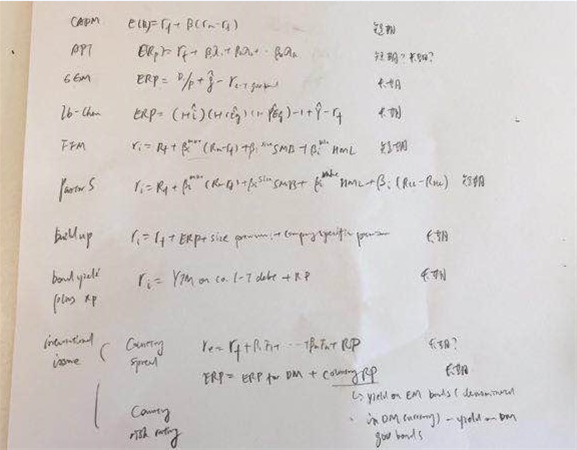 CAPM E(Ri)=rf+β(rm-rf) 短期
APT ERp)=rf+β1λ1+β2λ2+…βnλn 短期?长期?
GGM ERP= D/P+ĝ-r 长期
Ib-Chen ERP=(1+î)(1+rEg)(1+PEg)-1+Ŷ-rf 长期
FFM ri=Rf+βi (Rm-rf)+βi size SMB+βi HML 短期
Pastor S ri=Rf+βi (Rm-rf)+βi size SMB+βi HML+βi( ) 短期
build up ri=rf+ERP+size premium+company specific premium 长期
bond yield plus RP ri=YTM on co. L-T debt+RP 长期
international issue ( Country spread re=rf+β1F1+…+βnFn+RP 长期?
ERP=ERP for DM+Country RP 长期
↳ yield on EM bonds (denominated
in DM currency) - yield on DM
gov bonds
Country risk rating